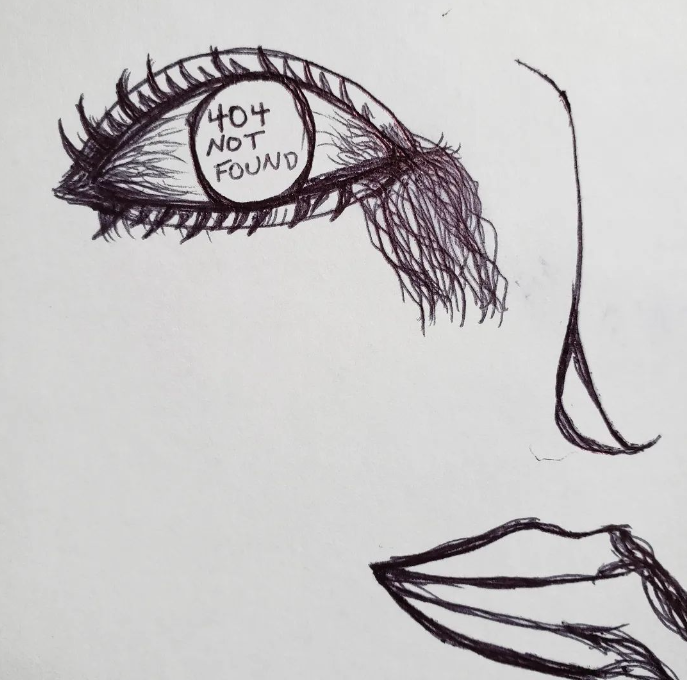 404
NOT
FOUND